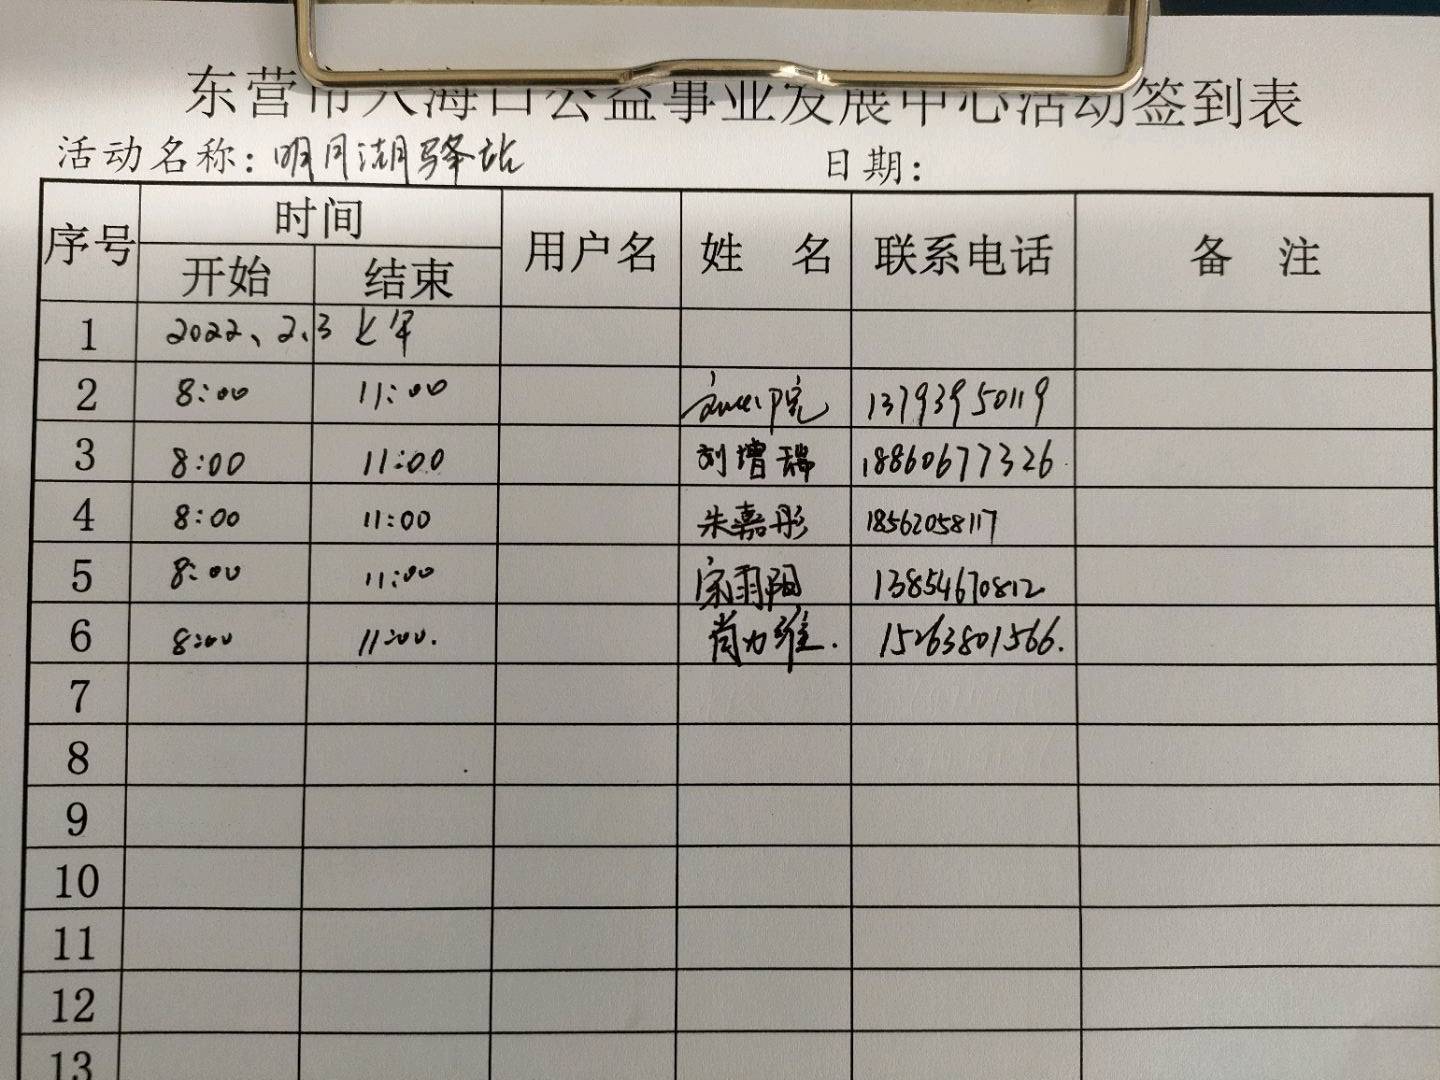 东营市大海口公益事业发展中心活动签到表
活动名称：明月湖驿站 日期：
序号 时间 用户名 姓 名 联系电话 备 注
开始 结束
1 2022、2、3 上午
2 8:00 11:00 13793950119
3 8:00 11:00 刘增瑞 18860677326
4 8:00 11:00 朱嘉彤 18562058117
5 8:00 11:00 宗雨阳 13854670812
6 8:00 11:00. 肖力维. 15263801566.
7
8
9
10
11
12
13